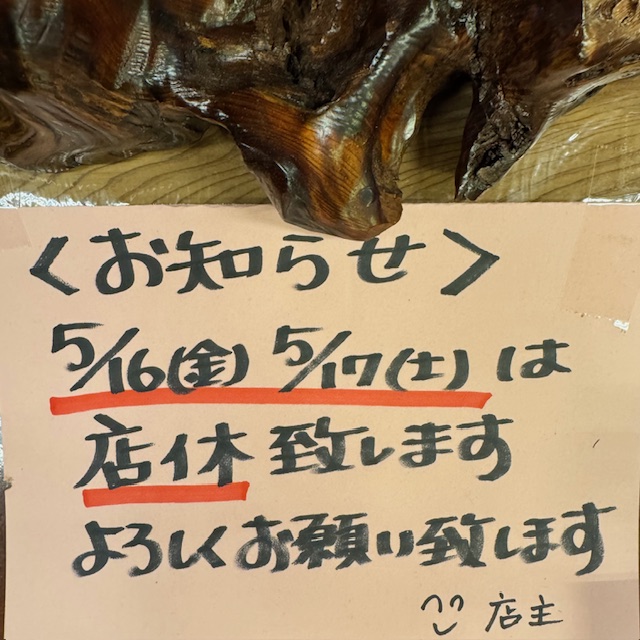 <お知らせ>
5/16(金) 5/17(土)は
店休致します
よろしくお願い致します
店主